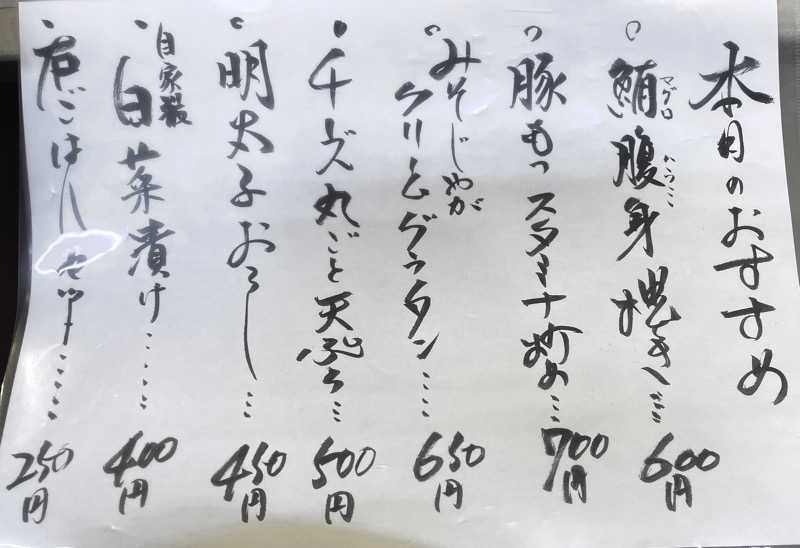 本日のおすすめ
鮪腹身焼き… 600円
マグロ
ハラミ
豚もつスタミナ炒め… 700円
みそじゃが
クリームグラタン… 650円
チーズ丸ごと天ぷら… 500円
明太子おろし… 450円
自家製
白菜漬け… 400円
ごはんセット… 250円